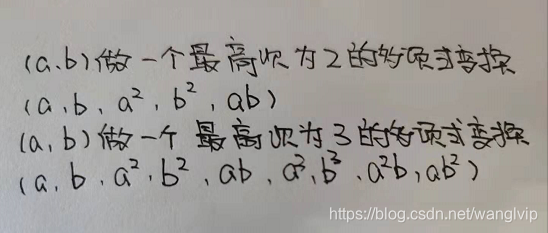 (a,b)做一个最高次为2的多项式变换
(a,b,a²,b²,ab)
(a,b)做一个最高次为3的多项式变换
(a,b,a²,b²,ab,a³,b³,a²b,ab²)
https://blog.csdn.net/wanglvip